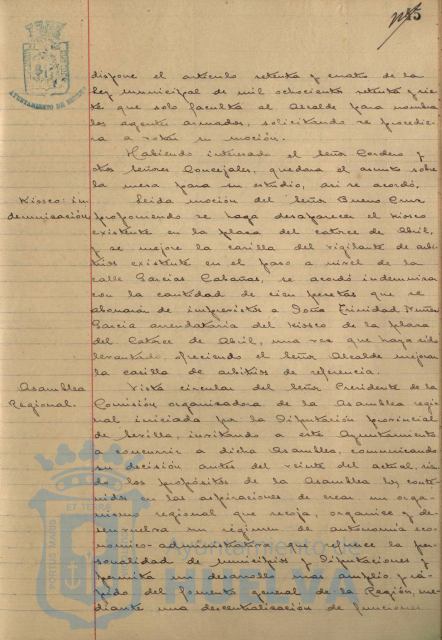 145
AYUNTAMIENTO DE HUELVA
dispone el artículo setenta y cuatro de la
ley municipal de mil ochocientos setenta y sie-
te que solo faculta al Alcalde para nombrar
los agentes armados, solicitando se procediera
a votar su moción.
Habiendo interesado el Señor Cordero y
otros Señores Concejales, quedara el asunto sobre
la mesa para su estudio, así se acordó.
Kiosco: in-
demnización
Leida moción del Señor Bueno Cruz
proponiendo se haga desaparecer el kiosco
existente en la plaza del catorce de Abril,
y se mejore la casilla del vigilante de arbi-
trios existente en el paso a nivel de la
calle Garcias Cabañas, se acordó indemnizar
con la cantidad de cien pesetas que se
abonarán de imprevistos a Doña Trinidad Nuñez
Garcia arrendataria del Kiosco de la plaza
del Catorce de Abril, una vez que haya sido
levantado, ofreciendo el Señor Alcalde mejorar
la casilla de arbitrios de referencia.
Asamblea
Regional.
Vista circular del Señor Presidente de la
Comisión organizadora de la Asamblea regio-
nal iniciada por la Diputación provincial
de Sevilla, invitando a este Ayuntamiento
a concurrir a dicha Asamblea, comunicando
su decisión antes del veinte del actual, sien-
do los propósitos de la Asamblea los conte-
nidos en las aspiraciones de crear un orga-
nismo regional que recoja, organice y de-
senvuelva un régimen de autonomía eco-
nómico-administrativa que refuerce la per-
sonalidad de municipios y Diputaciones y
permita un desarrollo mas amplio y rá-
pido del fomento general de la Región, me-
diante una descentralización de funciones
PORTUS MARIS ET TERRE
Ayuntamiento de
HUELVA